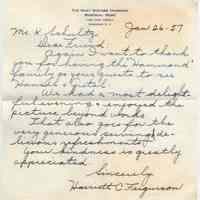 THE MARY WINTERS HAMMOND
MEMORIAL HOME
Jan 26-57
Mr. K. Schultz,
Dear Friend:
Again I want to thank
you for having the "Hammond"
family as your guests to see
We had a most delight-
ful evening & enjoyed the
picture beyond words.
That also goes for the
very generous serving of de-
licious refreshments!
Your kindness is greatly
appreciated
Sincerely
Harriett C. Ferguson